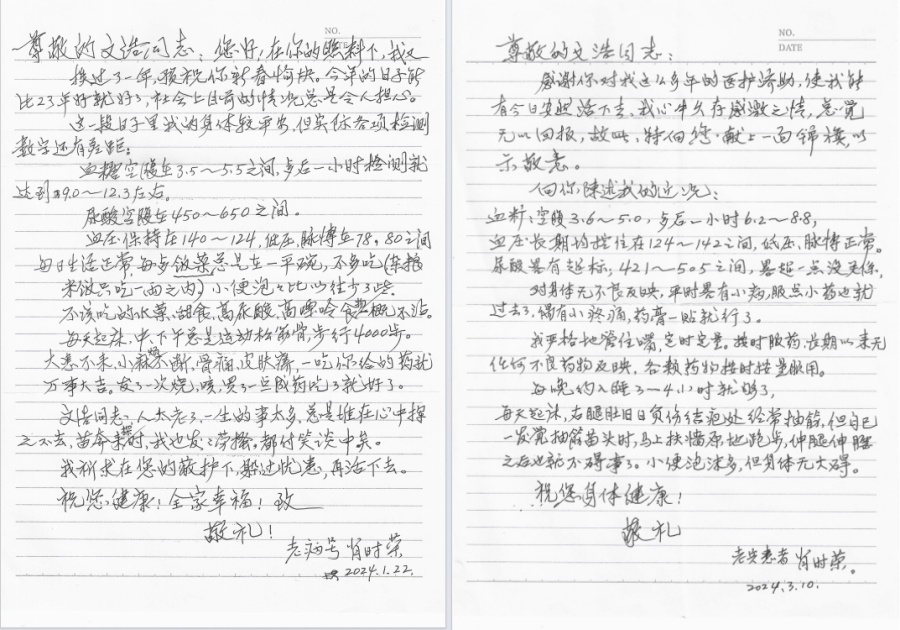 NO.
尊敬的文浩同志：您好，在你的照料下，我又
挨过了一年，预祝你新春愉快。今年的日子能
比23年好就好了，社会上目前的情况总是令人担心。
这一段日子里我的身体较平安，但实际各项检测
数字还有差距：
血糖空腹在3.5～5.5之间，歺后一小时检测就
达到9.0～12.3左右。
尿酸空腹在450～650之间。
血压保持在140～124，低压，脉博在78，80之间
每日生活正常，每歺饭菜总是在一平碗，不多吃(杂粮
米饭只吃一两之内)小便泡々比以往少了些.
不该吃的水菜、甜食、高尿酸、高嘌呤食物概不沾。
每天起床，中、下午总是运动松筋骨，步行4000步。
大患不来，小麻烦不断，骨痛，皮肤痒，一吃你给的药就
万事大吉。发了一次烧，咳，累了一旦成药吃了就好了。
文浩同志：人太老了，一生的事太多，总是堆在心中挥
之不去，
我也发々劳骚，都付笑谈中矣。
我祈求在您的蔽护下，躲过忧患，再活下去。
祝您健康！全家幸福！致
敬礼！
老病号 肖时荣
2024.1.22.
NO.
DATE
尊敬的文浩同志：
感谢你对我这么多年的医护济助，使我能
有今日安然活下去，我心中久存感激之情，总觉
无以回报，故此，特向您献上一面锦旗，以
示敬意。
向你陈述我的近况：
血糖：空腹3.6～5.0，歺后一小时6.2～8.8，
血压长期均控住在124～142之间，低压，脉搏正常。
尿酸略有超标，421～505之间，略超一点没关系，
对身体无不良反映，平时略有小病，服点小药也就
过去了，偶有小疼痛，药膏一贴就行了。
我严格地管住嘴，定时定量。按时服药，长期以来无
任何不良药物反映，各类药物按时按量服用。
每晚约入睡3—4小时就够了，
每天起床，右腿肚旧日负伤结疤处经常抽筋，但自己
一发觉抽筋苗头时，马上扶墙原地跑步，伸腿伸腰
之后也就不碍事了。小便泡沫多，但身体无大碍。
祝您身体健康！
敬礼
老患者 肖时荣。
2024.3.10.